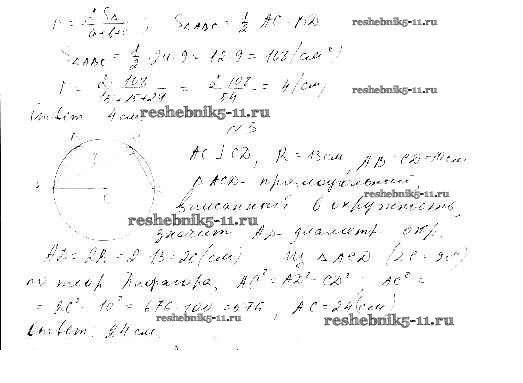 r = 2S∆ / a+b+c ; S∆ABC = 1/2 AC · BD
reshebnik5-11.ru
S∆ABC = 1/2 · 24 · 9 = 12 · 9 = 108 (см²)
r = 2 · 108 / 15+15+24 = 2 · 108 / 54 = 4 (см)
reshebnik5-11.ru
Ответ 4 см.
reshebnik5-11.ru
N3
AC ⊥ CD, R = 13 см, AB = CD = 10 см
∆ ACD - прямоугольный,
reshebnik5-11.ru
вписанный в окружность,
reshebnik5-11.ru
значит AD - диаметр окр.
AD = 2R = 2 · 13 = 26 (см) Из ∆ ACD (∠C = 90°)
по теор Пифагора, AC² = AD² - CD² AC² =
= 26² - 10² = 676 - 100 = 576, AC = 24 (см)
reshebnik5-11.ru
reshebnik5-11.ru
Ответ. 24 см.